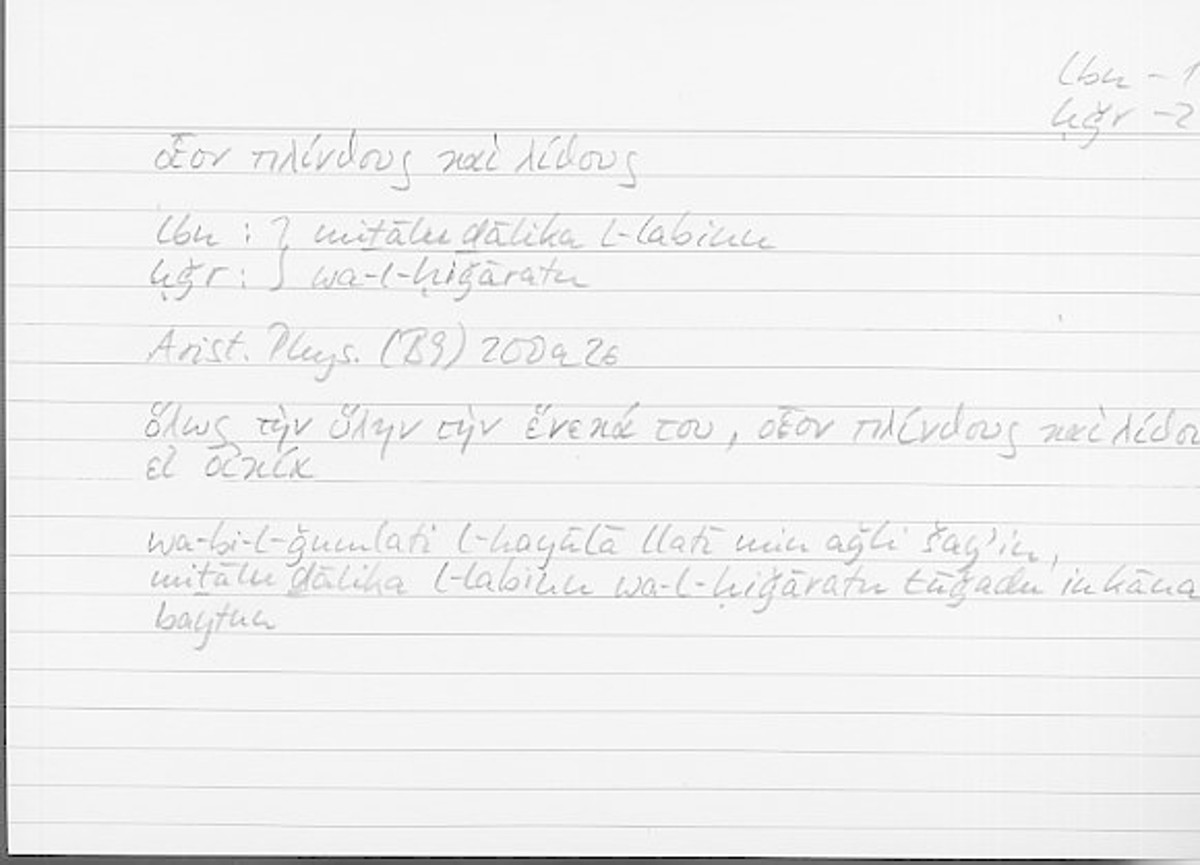 lbn – 1
ḥǧr – 2
οἷον πλίνθους καὶ λίθους
lbn : } miṯālu ḏālika l-labinu
ḥǧr : } wa-l-ḥiǧāratu
Arist. Phys. (B9) 200a26
ὅλως τὴν ὕλην τὴν ἕνεκά του, οἷον πλίνθους καὶ λίθου
εἰ οἰκία
wa-bi-l-ǧumlati l-hayūlā llatī min aǧli šay'in,
miṯālu ḏālika l-labinu wa-l-ḥiǧāratu tūǧadu in kāna
baytun